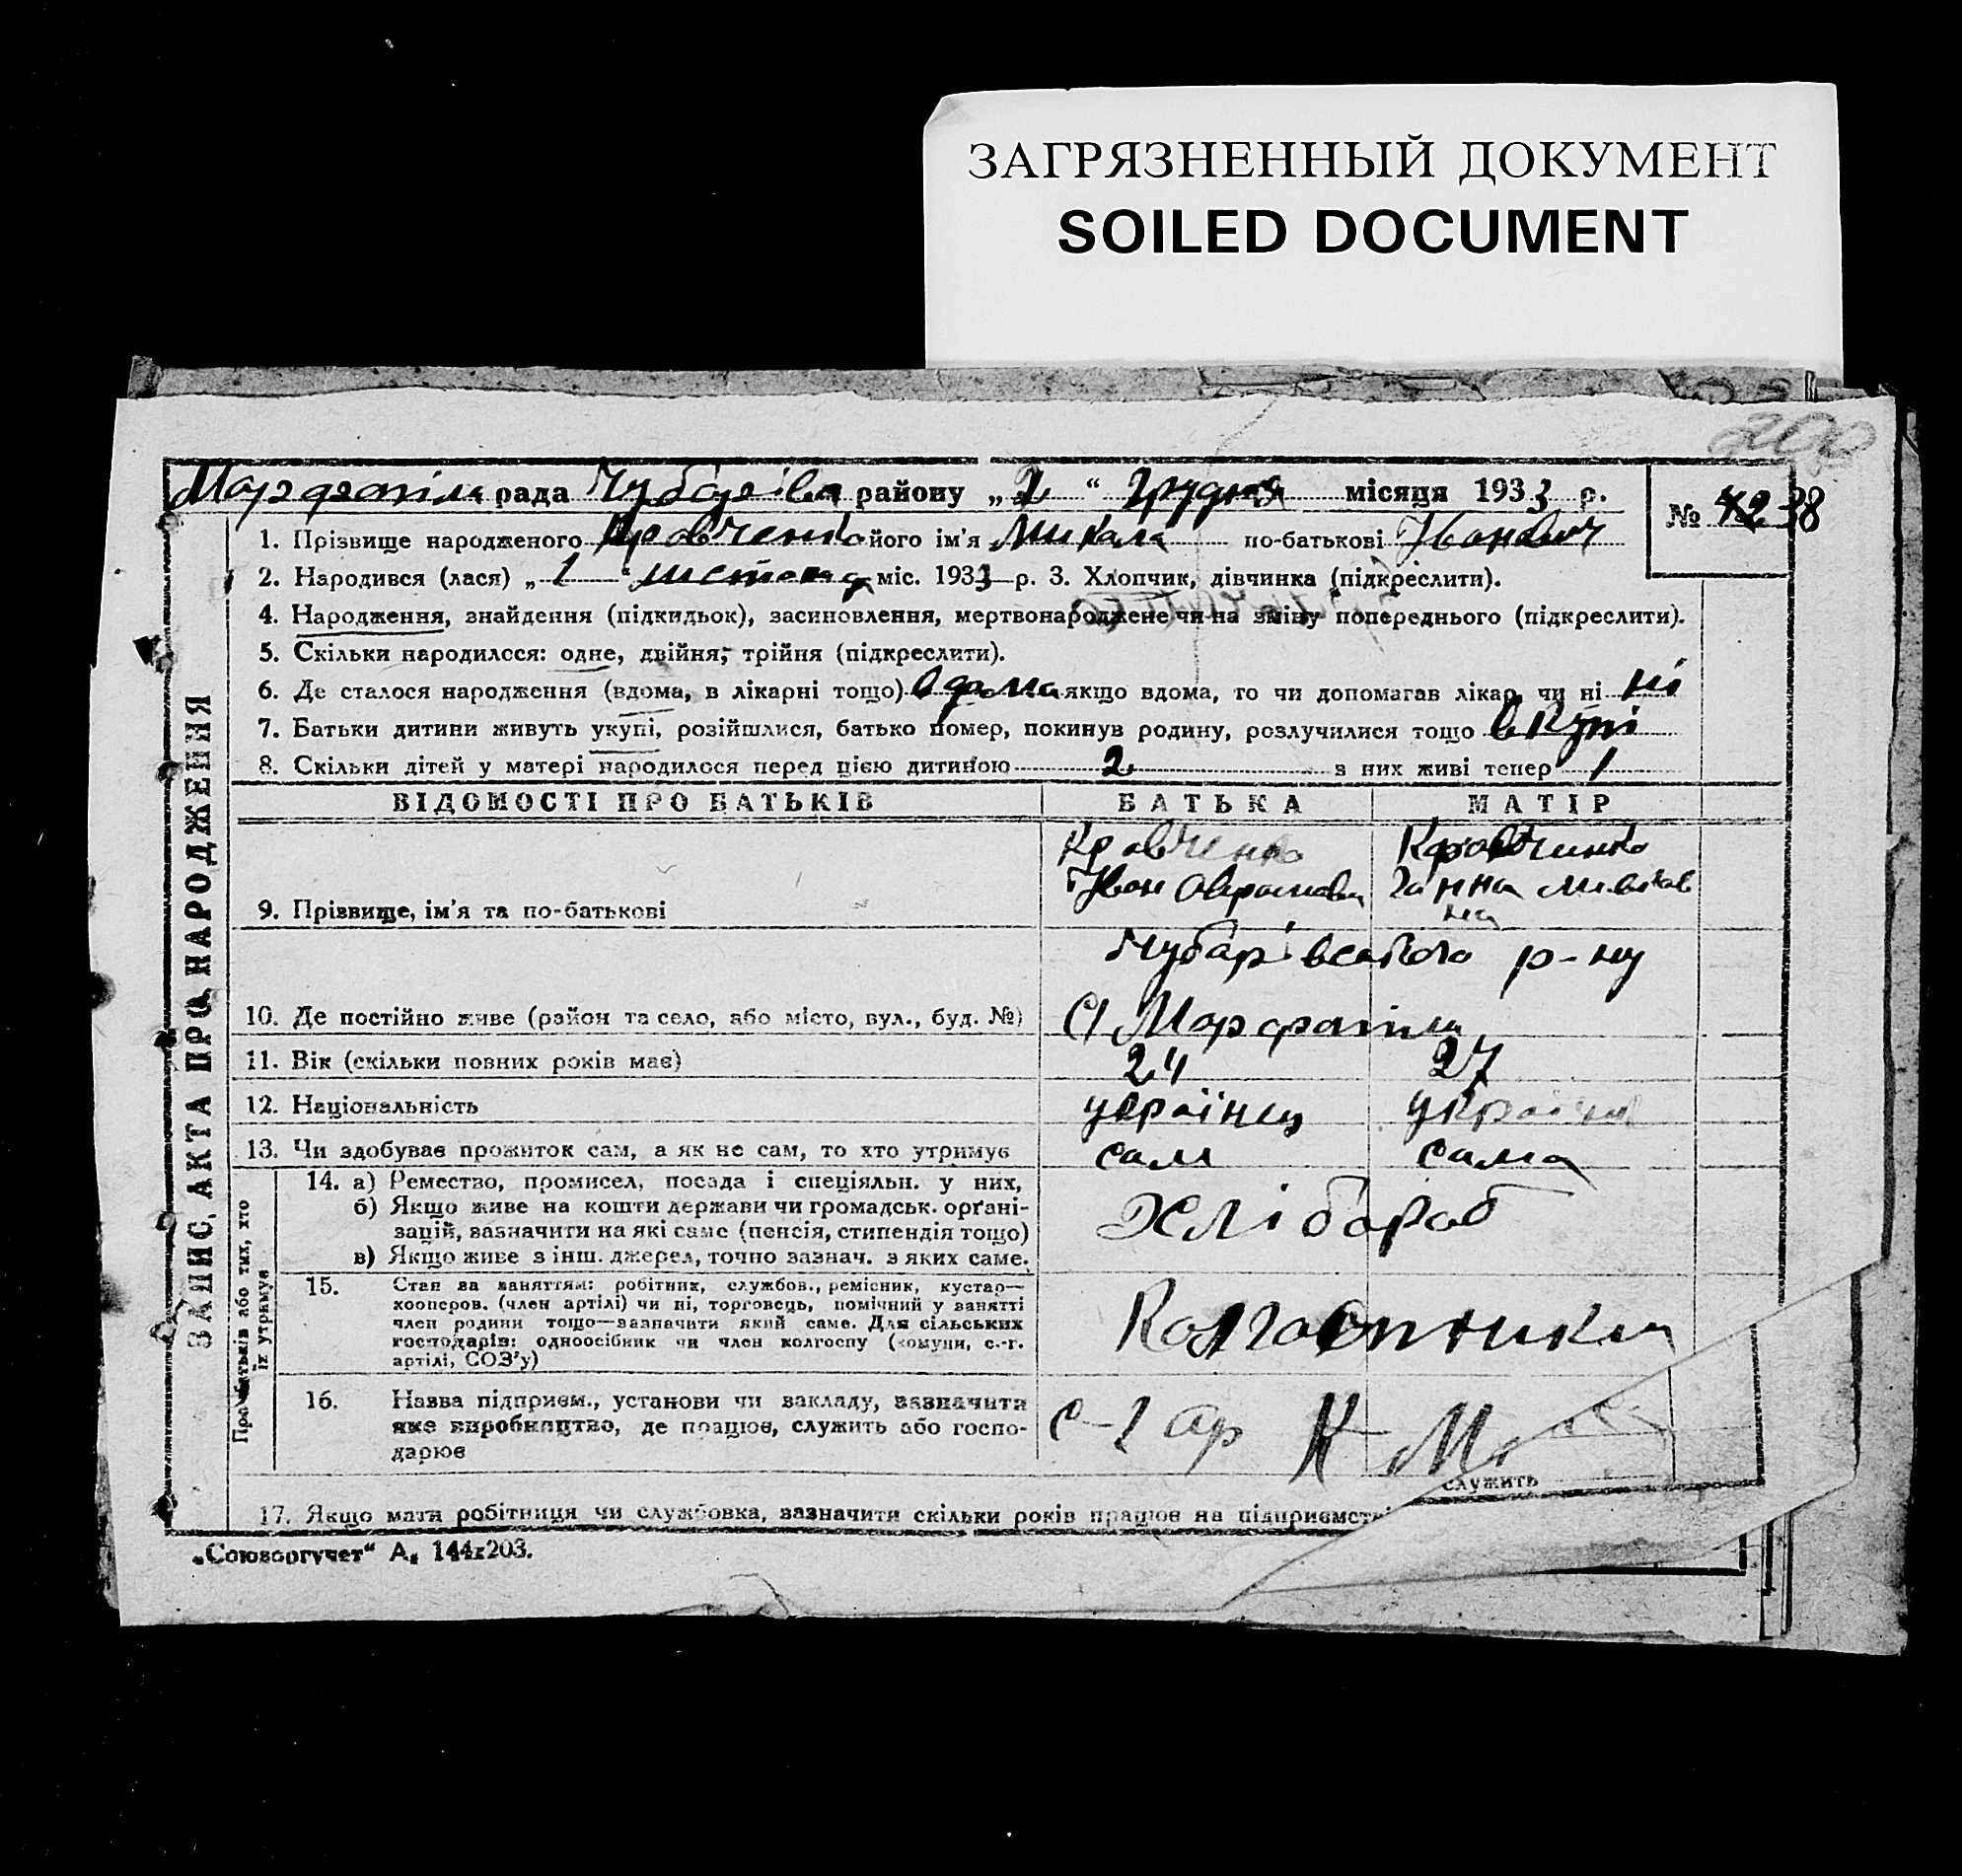 ЗАГРЯЗНЕННЫЙ ДОКУМЕНТ
SOILED DOCUMENT
200
Марфопіля рада Чубарівск району „2“ грудня місяця 1933 р.
№ 42 38
1. Прізвище народженого Кравченко його ім'я Микола по-батькові Іванович
2. Народився (лася) „1“ листопада міс. 1933 р. 3. Хлопчик, дівчинка (підкреслити).
4. Народження, знайдення (підкидьок), засиновлення, мертвонароджене чи на зміну попереднього (підкреслити).
5. Скільки народилося: одне, двійня, трійня (підкреслити).
6. Де сталося народження (вдома, в лікарні тощо) вдома якщо вдома, то чи допомагав лікар, чи ні ні
7. Батьки дитини живуть укупі, розійшлися, батько помер, покинув родину, розлучилися тощо вкупі
8. Скільки дітей у матері народилося перед цією дитиною 2 з них живі тепер 1
ЗАПИС АКТА ПРО НАРОДЖЕННЯ
ВІДОМОСТІ ПРО БАТЬКІВ БАТЬКА МАТІР
Кравченко Кравченко
Іван Ганна
9. Прізвище, ім'я та по-батькові
Чубарівського р-ну
10. Де постійно живе (район та село, або місто, вул., буд. №) С Марфопіль
11. Вік (скільки повних років має) 24 27
12. Національність українец україн
13. Чи здобуває прожиток сам, а як не сам, то хто утримує сам сама
Про батьків або тих, хто їх утримує
14. а) Ремество, промисел, посада і спеціяльн. у них,
б) Якщо живе на кошти держави чи громадськ. орґані-
зацій, зазначити на які саме (пенсія, стипендія тощо)
в) Якщо живе з інш. джерел, точно зазнач. з яких саме.
Хлібороб
15. Стан за заняттям: робітник, службов., ремісник, кустар—
кооперов. (член артілі) чи ні, торговець, помічний у занятті
член родини тощо—зазначити який саме. Для сільських
господарів: одноосібник чи член колгоспу (комуни, с.-г.
артілі, СОЗ'у)
Колгоспники
16. Назва підприєм., установи чи закладу, зазначити
яке виробництво, де працює, служить або госпо-
дарює
с-г ар К М
служить
17. Якщо мати робітниця чи службовка, зазначити скільки років працює на підприємстві
„Союзоргучет“ А. 144х203.